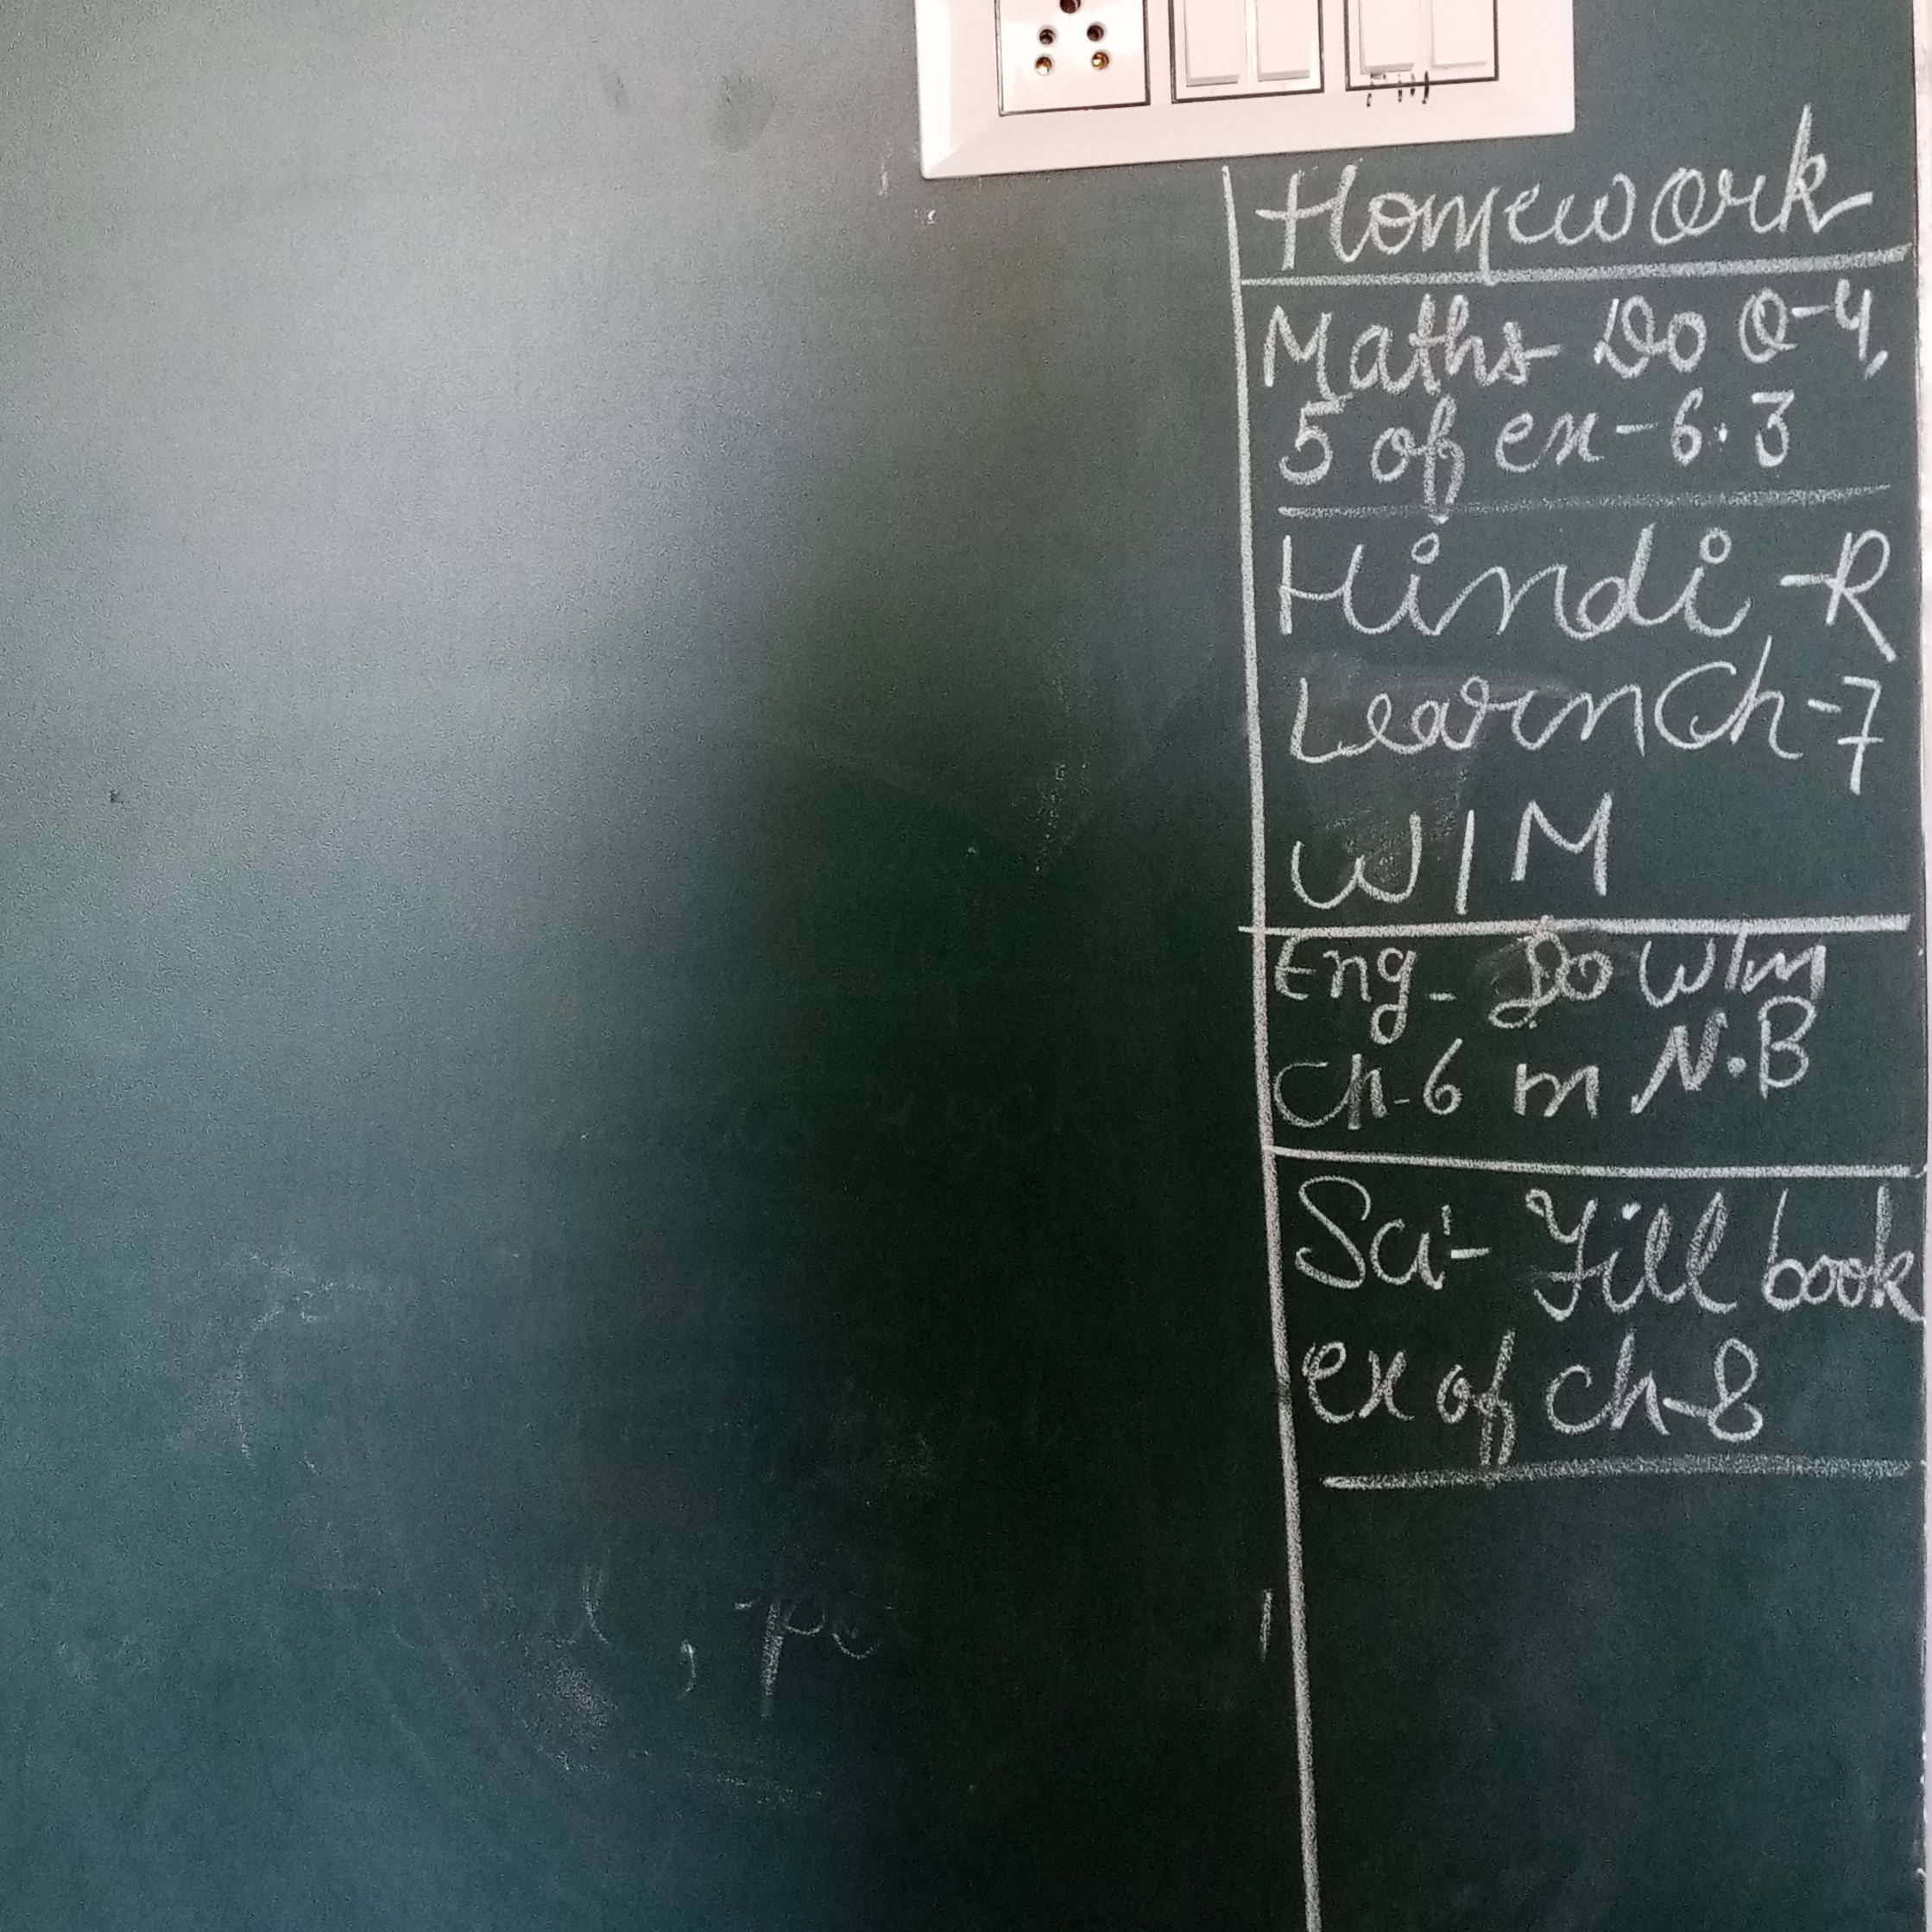 Homework
Maths Do Q-4,
5 of ex-6.3
Hindi -R
Learn Ch-7
W/M
Eng- Do W/m
Ch-6 in N.B
Sci- Fill book
ex of ch-8